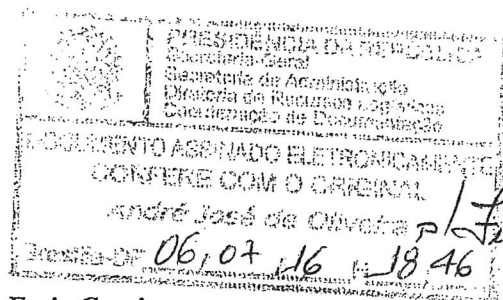 PRESIDÊNCIA DA REPÚBLICA
Secretaria-Geral
Secretaria de Administração
Diretoria de Recursos Logísticos
Coordenação de Documentação
DOCUMENTO ASSINADO ELETRONICAMENTE
CONFERE COM O ORIGINAL
André José de Oliveira
Brasília-DF 06, 07, 16 18 46